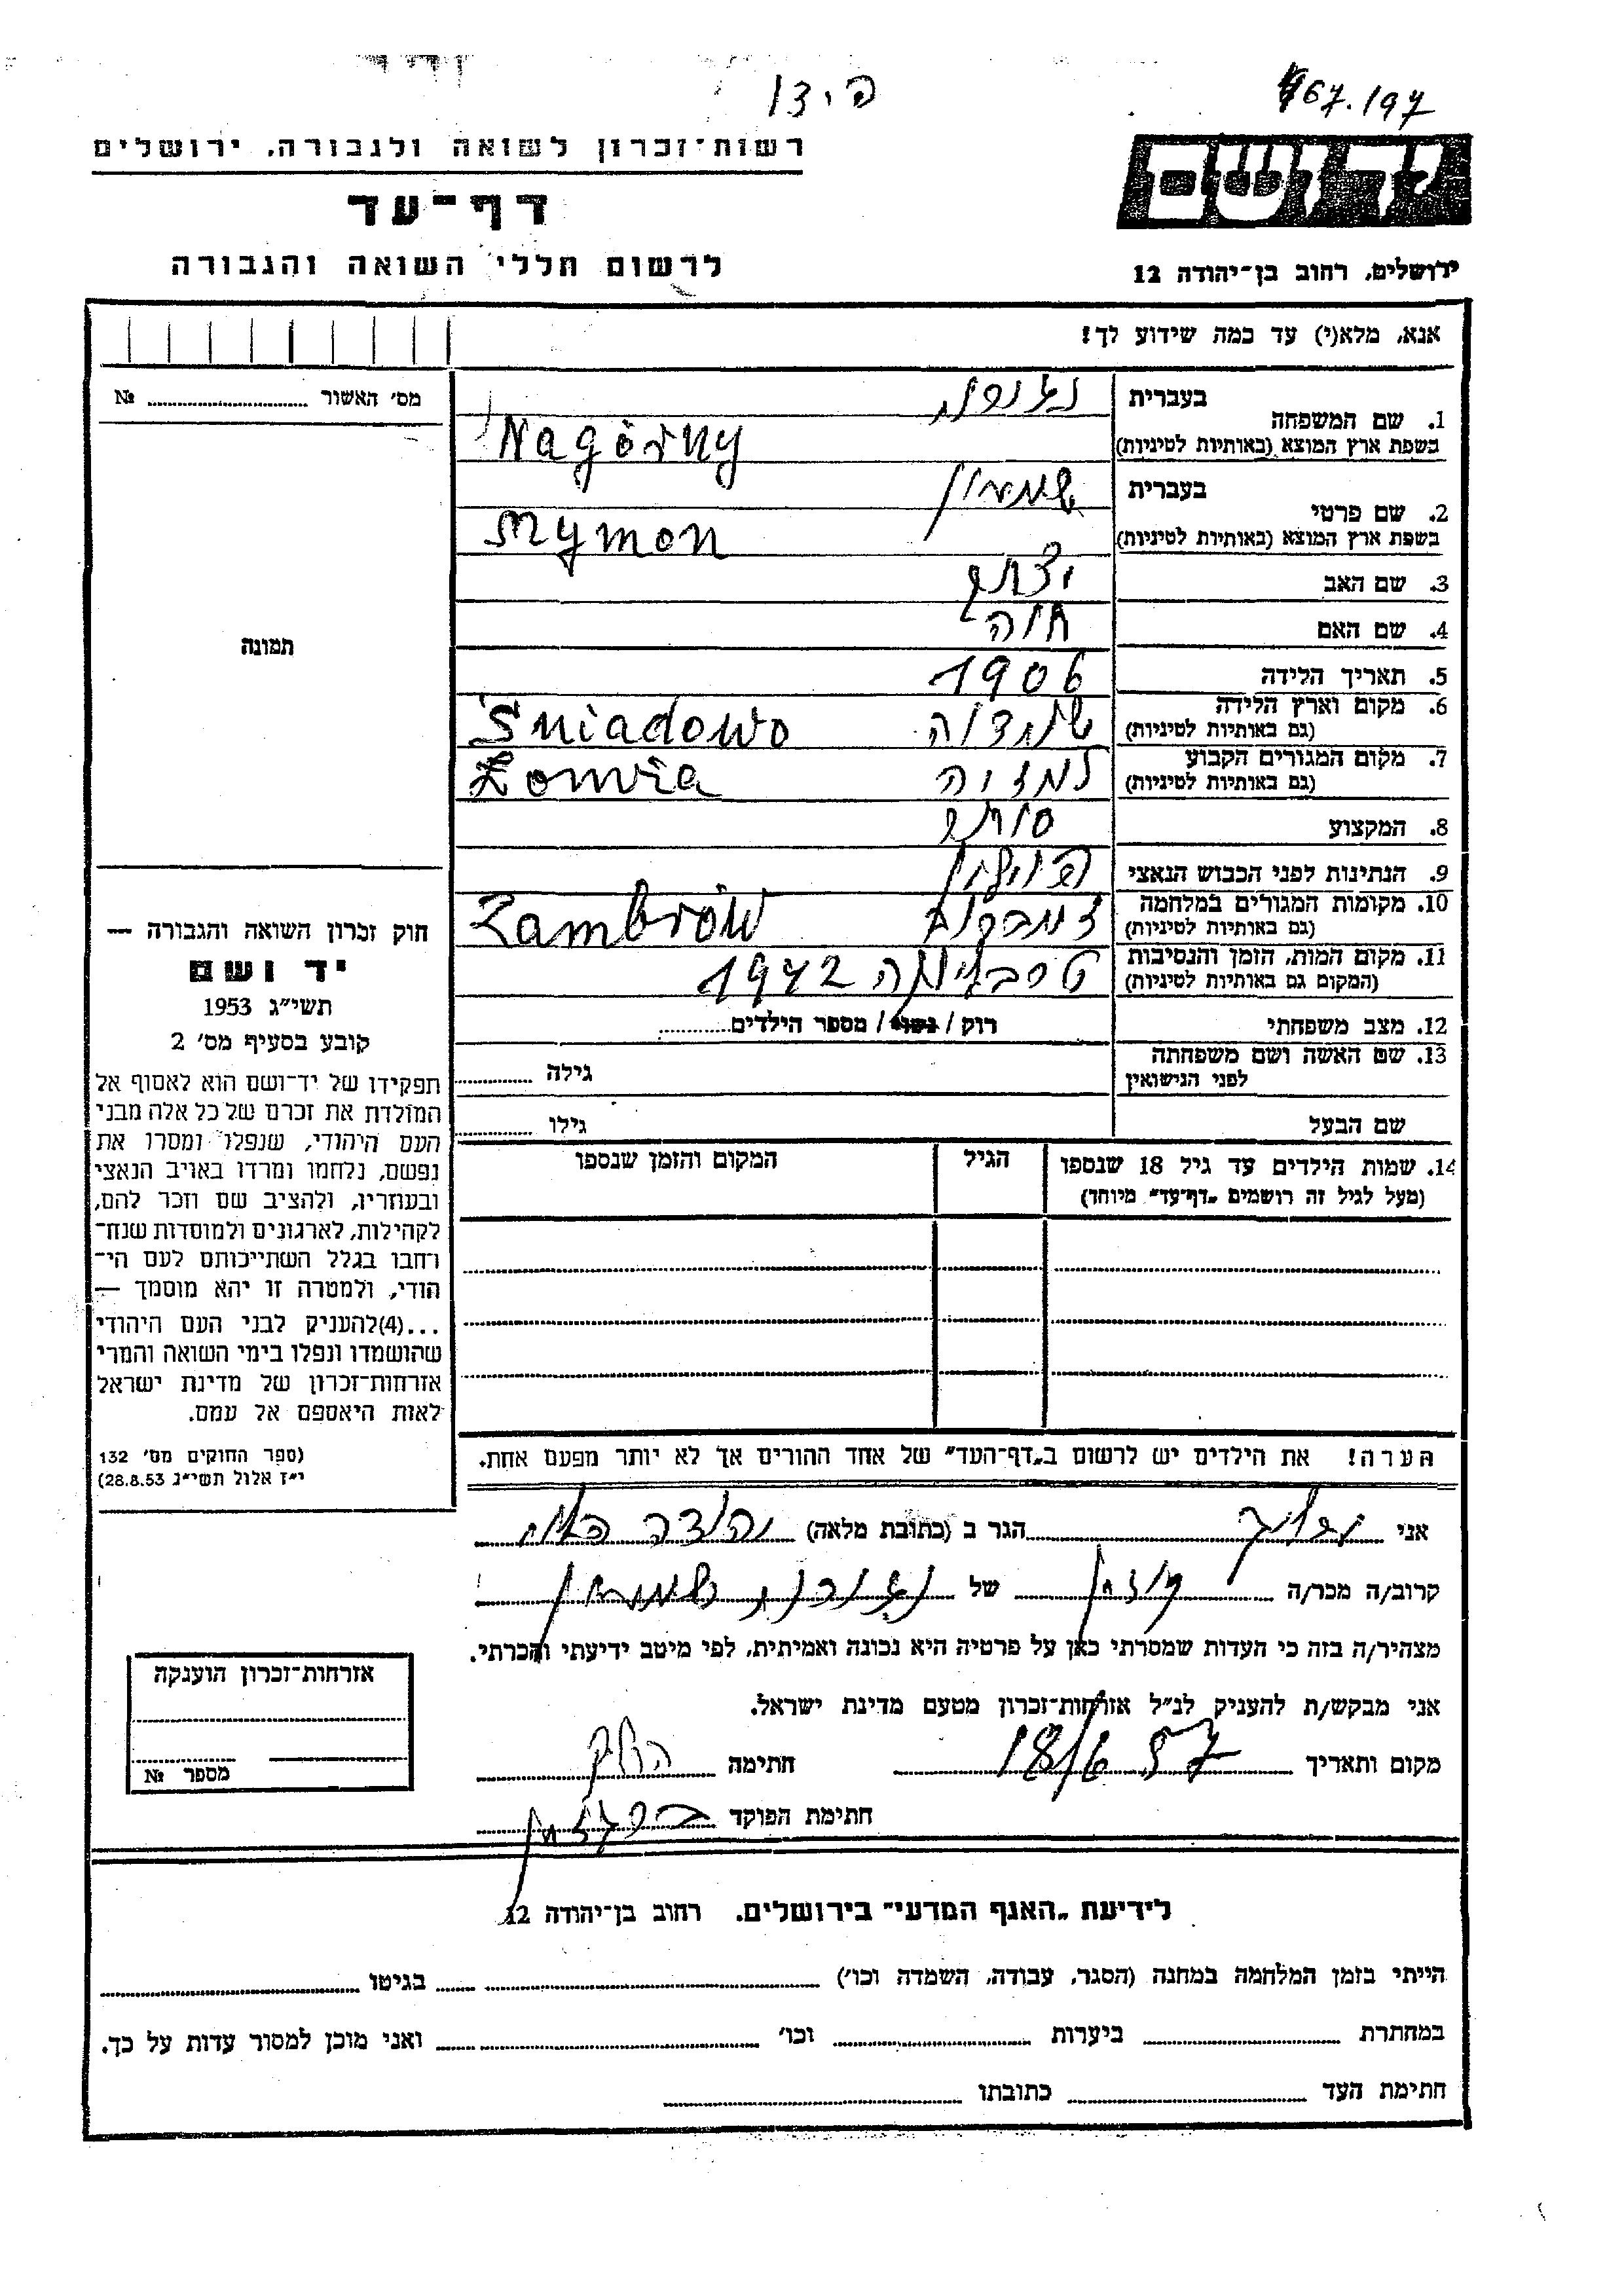 167.197
רשות-זכרון לשואה ולגבורה, ירושלים
יד ושם
דף-עד
לרשום חללי השואה והגבורה
ירושלים, רחוב בן-יהודה 12
אנא, מלא(י) עד כמה שידוע לך!
מס׳ האשור ........ №
תמונה
1. שם המשפחה בעברית
בשפת ארץ המוצא (באותיות לטיניות) Nagórny
2. שם פרטי בעברית שמעון
בשפת ארץ המוצא (באותיות לטיניות) Szymon
3. שם האב יצחק
4. שם האם חוה
5. תאריך הלידה 1906
6. מקום וארץ הלידה
(גם באותיות לטיניות) Śniadowo
7. מקום המגורים הקבוע
(גם באותיות לטיניות) למזה Łomża
8. המקצוע סוחר
9. הנתינות לפני הכבוש הנאצי
10. מקומות המגורים במלחמה
(גם באותיות לטיניות) זמברוב Zambrów
11. מקום המות, הזמן והנסיבות
(המקום גם באותיות לטיניות) טרבלינקה 1942
12. מצב משפחתי רוק / נשוי / מספר הילדים ........
13. שם האשה ושם משפחתה
לפני הנישואין גילה ........
שם הבעל גילו ........
14. שמות הילדים עד גיל 18 שנספו הגיל המקום והזמן שנספו
(מעל לגיל זה רושמים „דף-עד״ מיוחד)
הערה! את הילדים יש לרשום ב„דף-העד״ של אחד ההורים אך לא יותר מפעם אחת.
חוק זכרון השואה והגבורה —
יד ושם
תשי״ג 1953
קובע בסעיף מס׳ 2
תפקידו של יד-ושם הוא לאסוף אל
המולדת את זכרם של כל אלה מבני
העם היהודי, שנפלו ומסרו את
נפשם, נלחמו ומרדו באויב הנאצי
ובעוזריו, ולהציב שם וזכר להם,
לקהילות, לארגונים ולמוסדות שנח-
רחבו בגלל השתייכותם לעם הי-
הודי, ולמטרה זו יהא מוסמך —
...(4)להעניק לבני העם היהודי
שהושמדו ונפלו בימי השואה והמרי
אזרחות-זכרון של מדינת ישראל
לאות היאספם אל עמם.
(ספר החוקים מס׳ 132
י״ז אלול תשי״ג 28.8.53)
אני ........ הגר ב (כתובת מלאה) ........
קרוב/ה מכר/ה ........ של ........ שמעון
מצהיר/ה בזה כי העדות שמסרתי כאן על פרטיה היא נכונה ואמיתית, לפי מיטב ידיעתי והכרתי.
אני מבקש/ת להעניק לנ״ל אזרחות-זכרון מטעם מדינת ישראל.
מקום ותאריך 18/6 57 חתימה ........
חתימת הפוקד ........
אזרחות-זכרון הוענקה
מספר №
לידיעת „האגף המדעי״ בירושלים, רחוב בן-יהודה 12
הייתי בזמן המלחמה במחנה (הסגר, עבודה, השמדה וכו׳) ........ בגיטו ........
במחתרת ........ ביערות ........ וכו׳ ........ ואני מוכן למסור עדות על כך.
חתימת העד ........ כתובתו ........